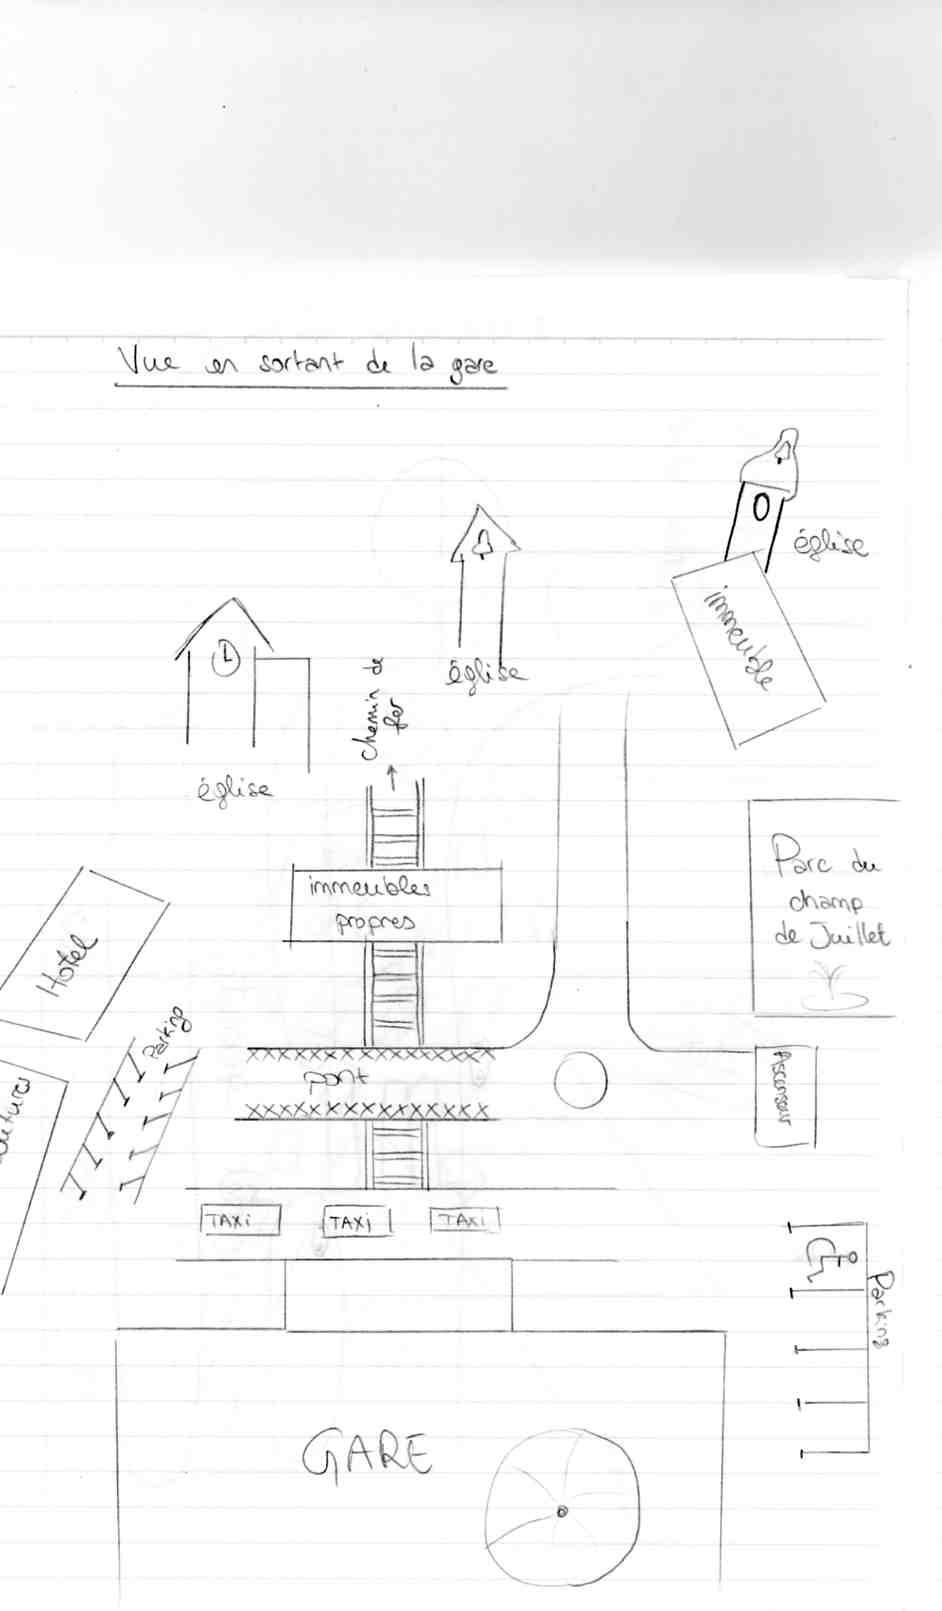 Vue en sortant de la gare
église
immeuble
église
chemin de
fer
église
Parc du
champ
de Juillet
immeubles
propres
Hotel
Parking
pont
Ascenseur
TAXi
TAXi
TAXi
Parking
GARE